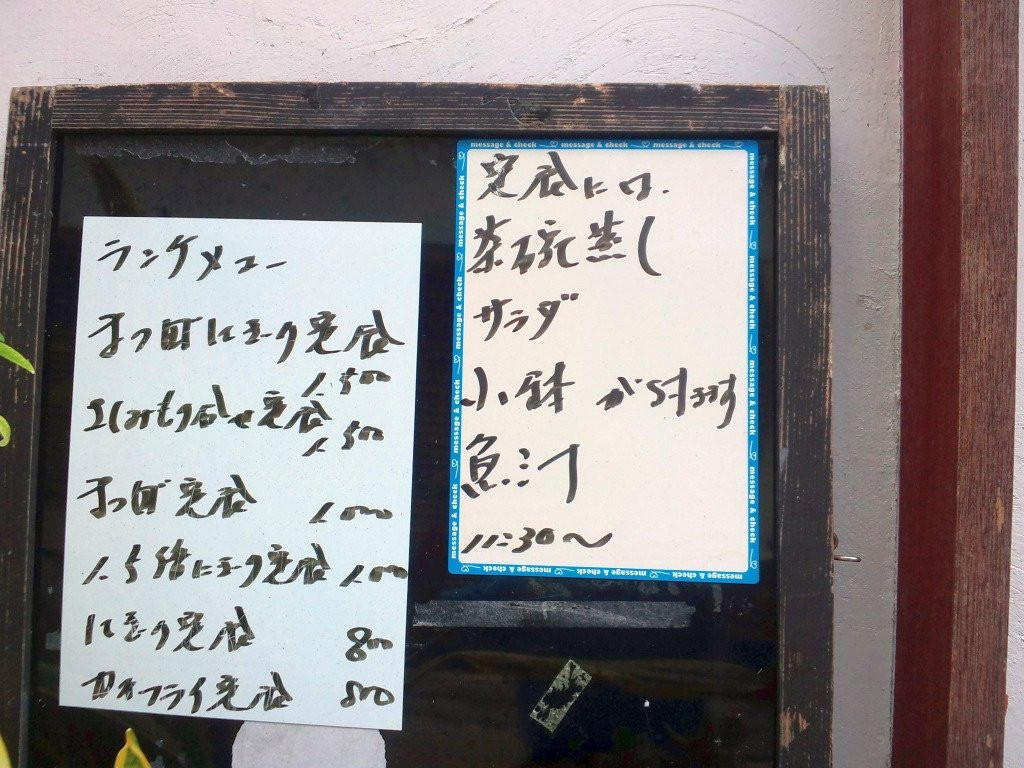 ランチメュー
まつ町にぎり定食
1,500
さしみもり合せ定食
1,500
まつ町定食 1,000
1.5倍にぎり定食 1,000
にぎり定食 800
カキフライ定食 800
message & check message & check message & check
定食には、
茶碗蒸し
サラダ
小鉢 が付きます
魚汁
11:30〜